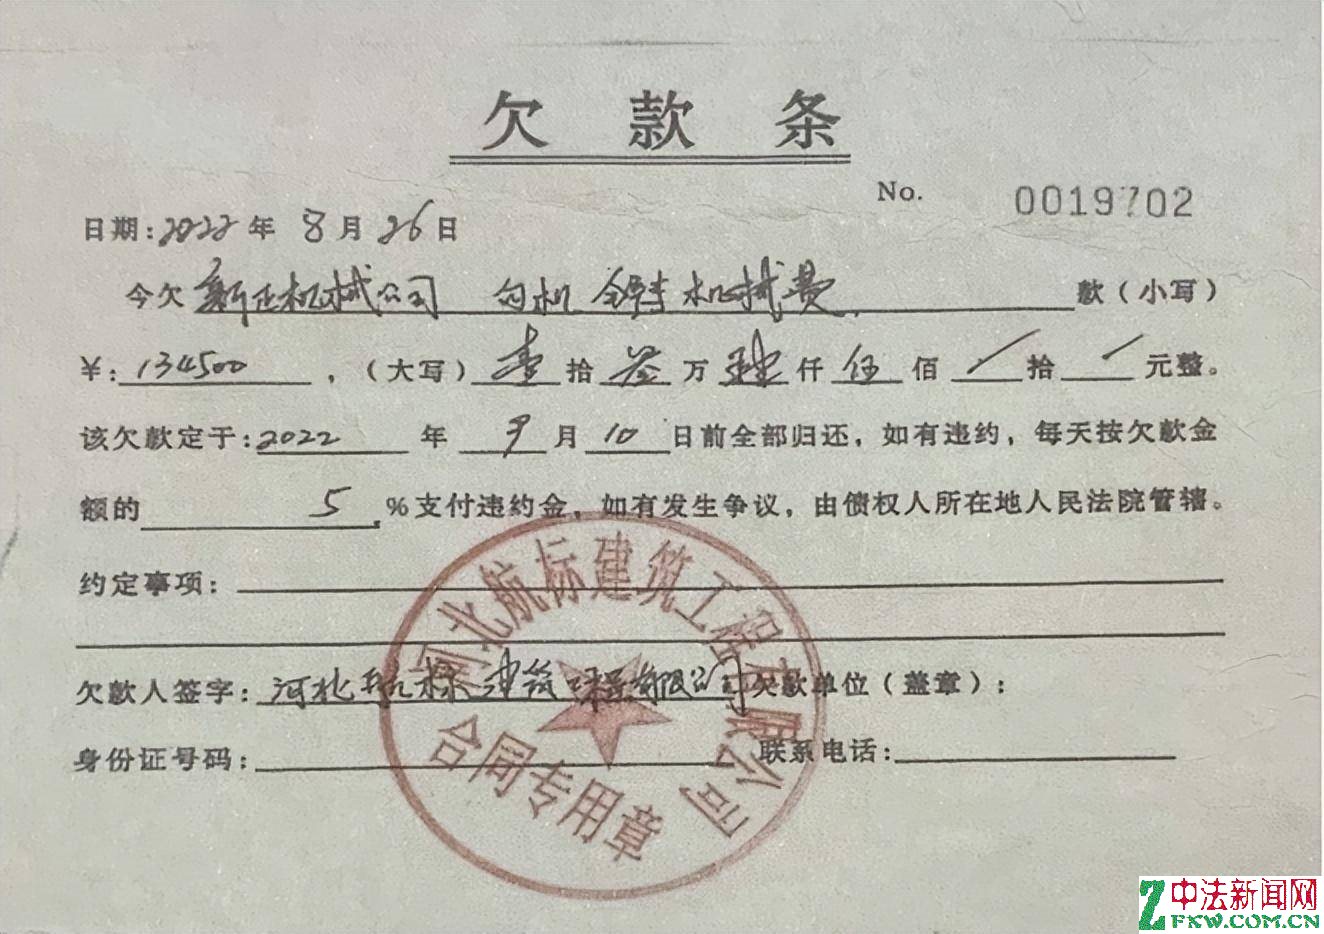 欠款条
No. 0019702
日期:2022年 8月 26日
今欠 新正机械公司 勾机 机械费 款（小写）
￥: 134500 ，（大写）壹拾叁万肆仟伍佰／拾／元整。
该欠款定于:2022 年 9月 10 日前全部归还，如有违约，每天按欠款金
额的 5 %支付违约金，如有发生争议，由债权人所在地人民法院管辖。
约定事项:
欠款人签字: 河北航标建筑工程有限公司 欠款单位（盖章）:
身份证号码: 联系电话:
河北航标建筑工程有限公司
合同专用章
中法新闻网
ZFXW.COM.CN